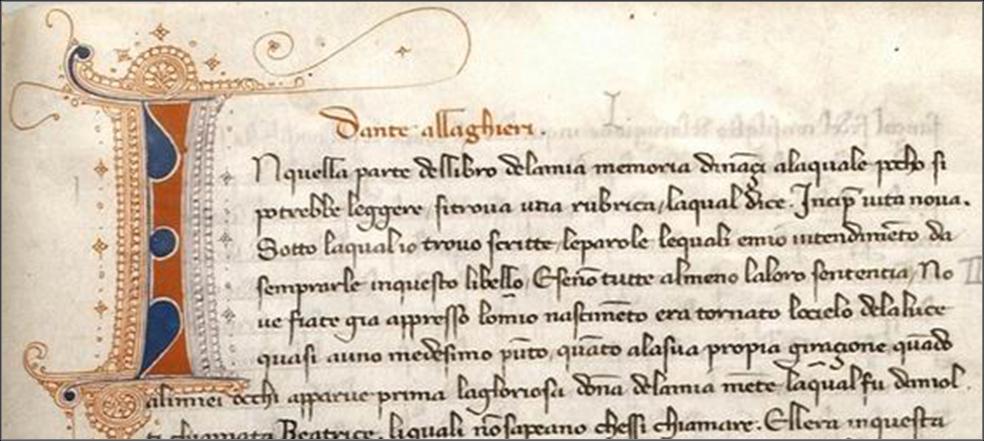 Dante allaghieri.
I
Nquella parte dellibro delamia memoria dināçi alaquale pocho si
potrebbe leggere, sitroua una rubrica, laqual dice. Incip̄ uita noua.
Sotto laqual io trouo scritte, leparole lequali emio intendimēto da
semprarle inquesto libello, Esenō tutte almeno laloro sententia, No
ue fiate gia appresso lomio nascimēto era tornato locielo delaluce
quasi auno medesimo pūto, quāto alasua propia giraçione quādo
alimiei occhi apparue prima lagloriosa dōna delamia mēte, laqual fu damol
ti chiamata Beatrice, liquali nōsapeano chessi chiamare. Ellera inquesta